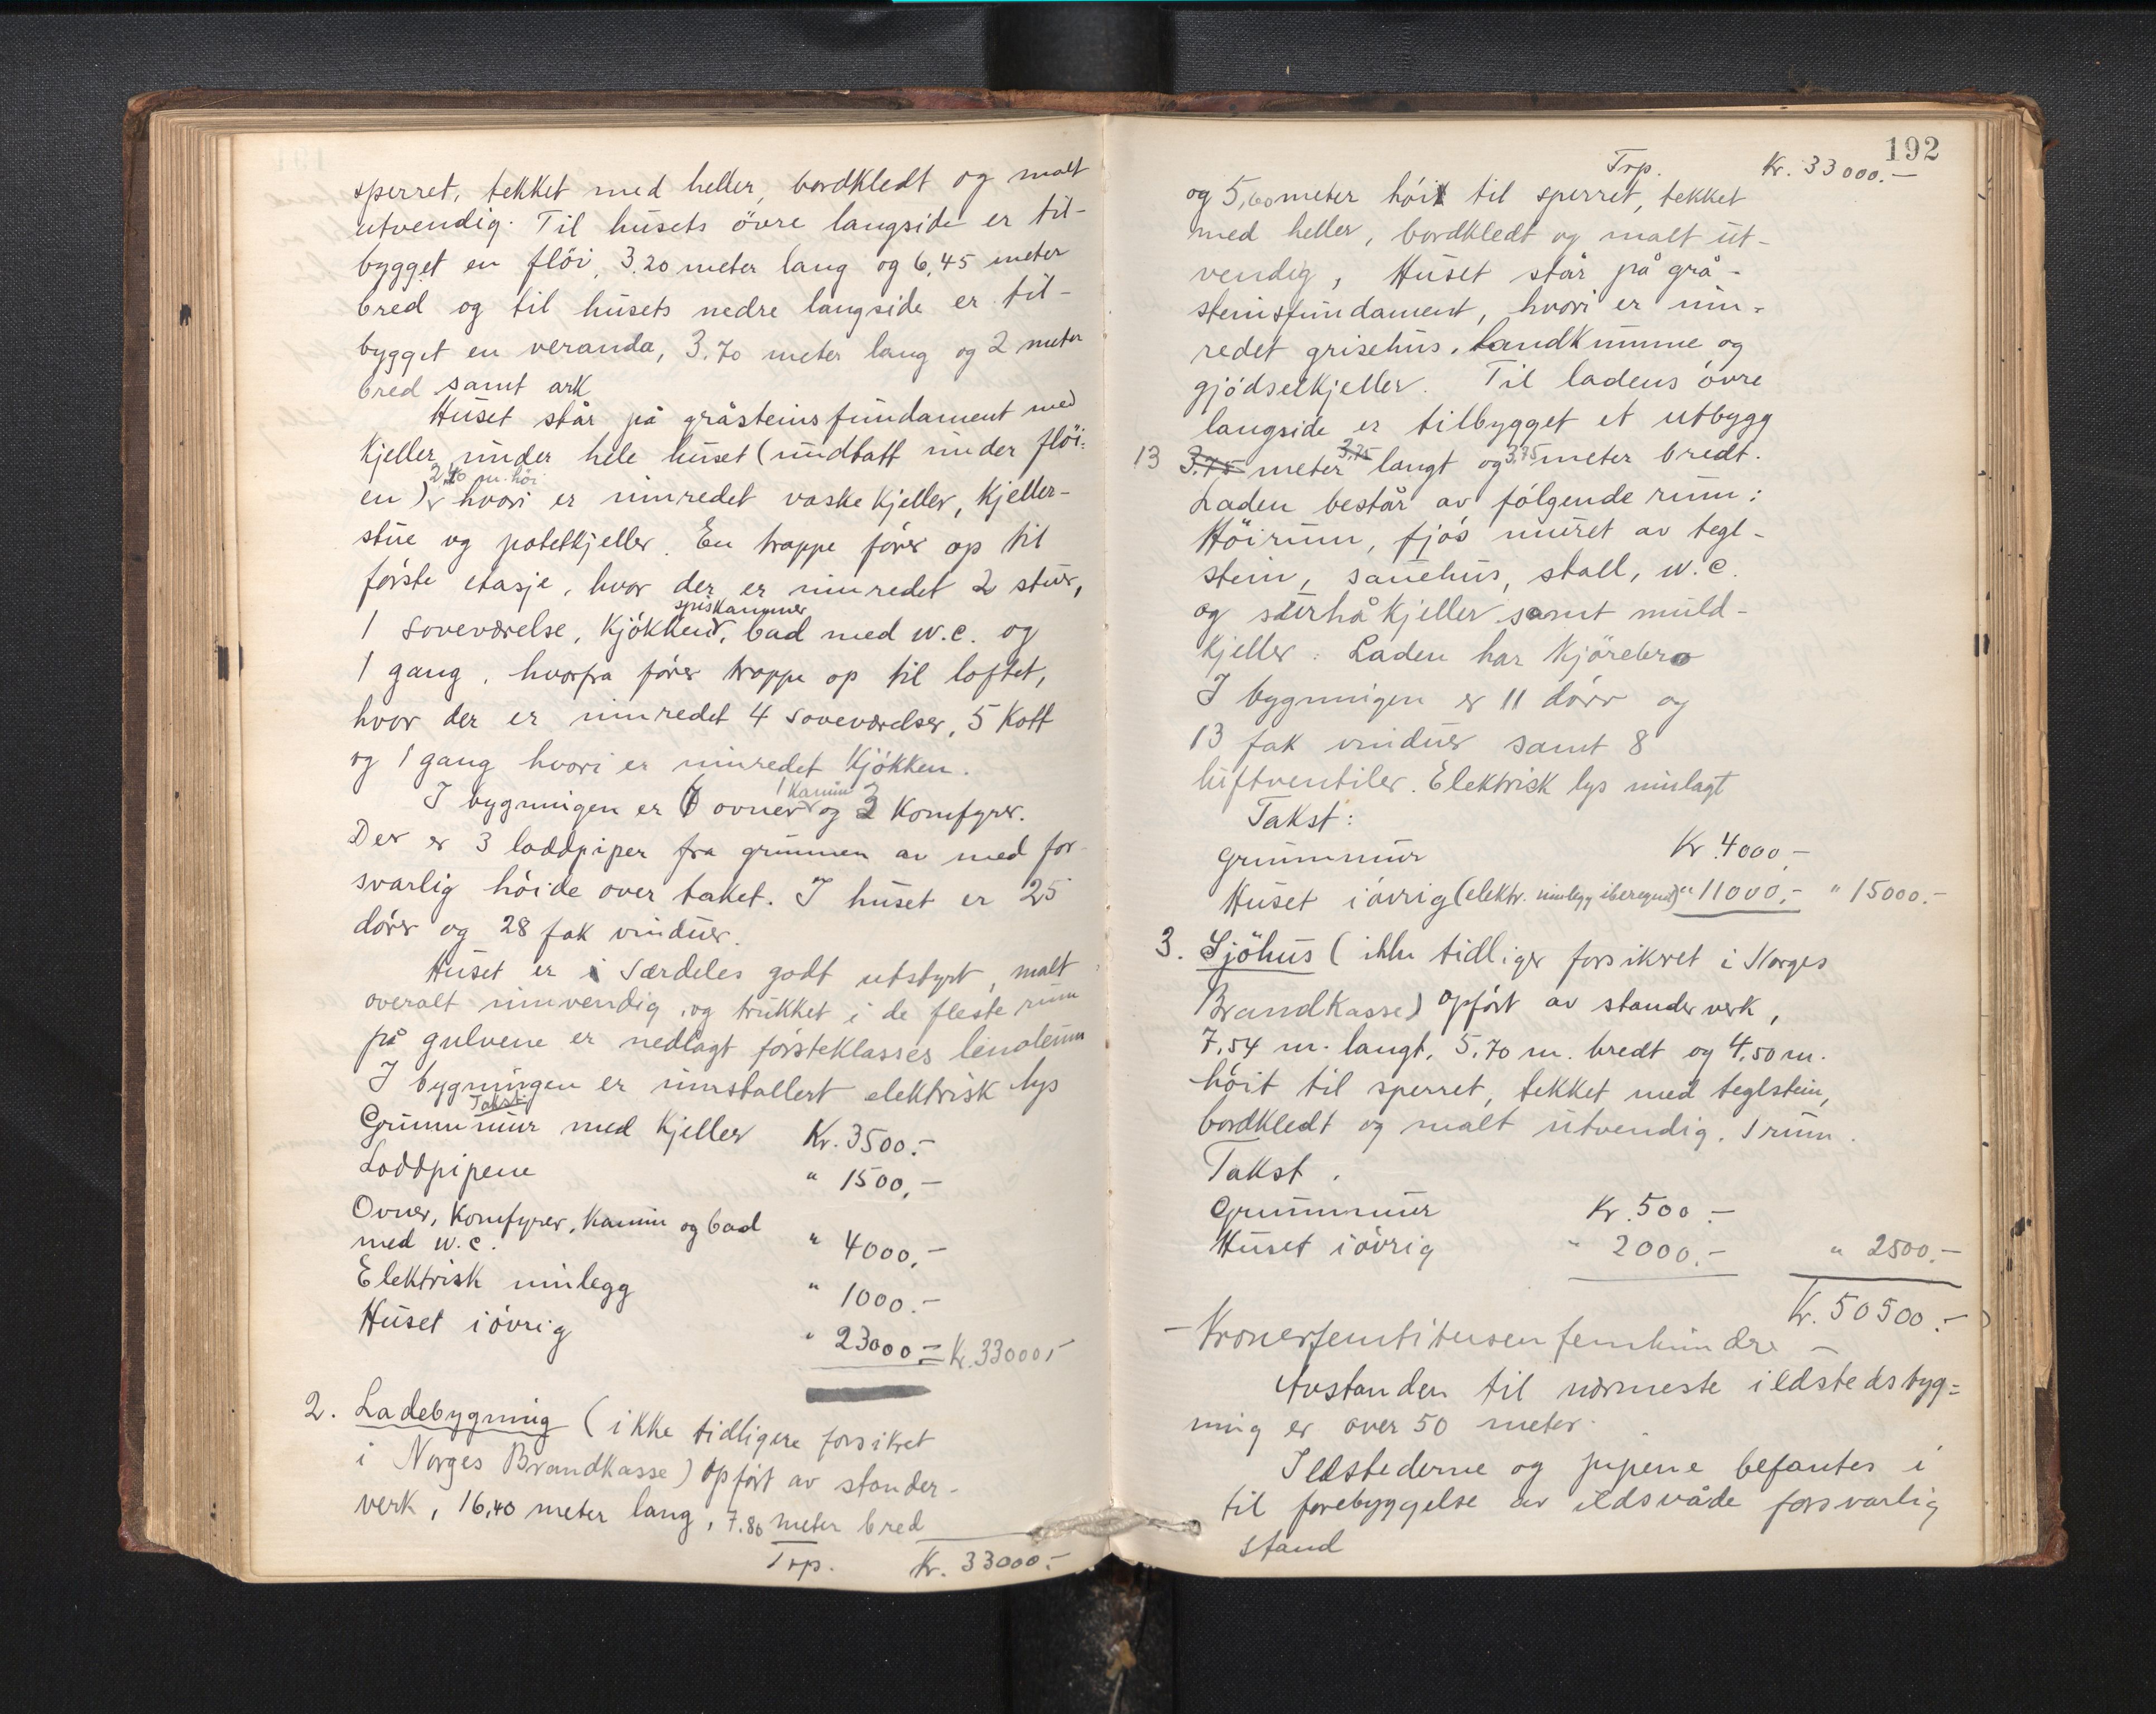 sperret, tekket med heller, bordkledt og malt
utvendig. Til husets övre langside er til-
bygget en flöi, 3.20 meter lang og 6,45 meter
bred og til husets nedre langside er til-
bygget en veranda, 3.70 meter lang og 2 meter
bred samt ark
Huset står på gråsteinsfundament med
Kjeller under hele huset (undtatt under flöi-
2,40 m. höi
en) hvori er innredet vaskekjeller, Kjeller-
stue og potetkjeller. En trappe förer op til
förste etasje, hvor der er innredet 2 stuer,
spiskammer
1 soveværelse, Kjökken, bad med w.c. og
1 gang, hvorfra förer trappe op til loftet,
hvor der er innredet 4 soveværelser, 5 Kott
og 1 gang hvori er innredet Kjökken.
1 Kamin
I bygningen er ovner og Komfyrer.
Der er 3 loddpiper fra grunnen av med for-
svarlig höide over taket. I huset er 25
dörer og 28 fak vinduer.
Huset er særdeles godt utstyrt, malt
overalt innvendig, og trukket i de fleste rum
på gulvene er nedlagt försteklasses linoleum
I bygningen er innstallert elektrisk lys
Takst:
Grunnmur med Kjeller Kr. 3500.-
Loddpipene " 1500,-
Ovner, Komfyrer, Kamin og bad
med w.c. " 4000,-
Elektrisk innlegg " 1000.-
Huset iövrig " 23000= Kr. 33000,-
2. Ladebygning (ikke tidligere forsikret
i Norges Brandkasse) opfört av stander-
verk, 16,40 meter lang, 7.80 meter bred
Trp. Kr. 33000.-
192
Trp. Kr. 33000.-
og 5,60 meter höi til sperret, tekket
med heller, bordkledt og malt ut-
vendig, Huset står på grå-
steinsfundament, hvori er inn-
redet grisehus, landkumme og
gjödselkjeller. Til ladens övre
langside er tilbygget et utbygg
3,75 3,75
13 3,75 meter langt og meter bredt.
Laden består av fölgende rum:
Höirum, fjös muret av tegl-
stein, sauehus, stall, w.c.
og surhåkjeller samt muld-
kjeller. Laden har Kjörebro
I bygningen er 11 dörer og
13 fak vinduer samt 8
luftventiler. Elektrisk lys innlagt
Takst:
Grunnmur Kr. 4000,-
Huset iövrig (elektr. innlegg iberegnet) " 11000,- " 15000.-
3. Sjöhus (ikke tidliger forsikret i Norges
Brandkasse) opfört av standerverk,
7,54 m. langt, 5,70 m. bredt og 4,50 m.
höit til sperret, tekket med teglstein,
bordkledt og malt utvendig. 1 rum.
Takst.
Grunnmur Kr. 500.-
Huset iövrig " 2000.- " 2500.-
Kr. 50500.-
- Kronerfemtitusenfemhundre -
Avstanden til nærmeste ildstedsbyg-
ning er over 50 meter.
Ildstederne og pipene befantes i
til forebyggelse av ildsvåde forsvarlig
stand